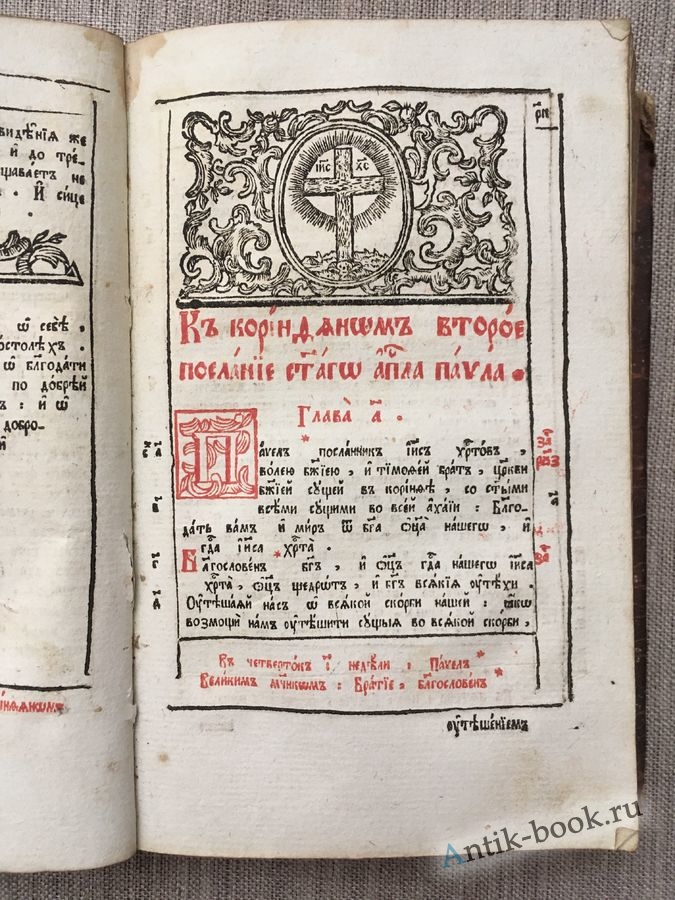 видѣ́нїѧ же
и҆ до тре-
щава́етъ не
. И҆ си́це
ѡ҆ себѣ̀ ,
постолѣхъ .
ѡ҆ бл҃года́ти
по до́брѣй
ъ : и҆ ѡ҆
добро-
І҆И҃С Х҃С
Къ корі́нѳѧнѡмъ второ́е
посла́нїе ст҃а́гѡ а҆п҃ла па́ѵла .
Глава̀ а҃ .
Па́ѵелъ * посла́нникъ і҆и҃съ хр҃то́въ ,
во́лею бж҃їею , и҆ тїмоѳе́й бра́тъ , цр҃кви
бж҃їей су́щей въ корі́нѳѣ , со ст҃ы́ми
всѣ́ми су́щими во все́й а҆ха́їи : Бл҃го-
да́ть ва́мъ и҆ ми́ръ ѿ бг҃а ѻ҆ц҃а̀ на́шегѡ , и҆
гд҃а і҆и҃са хр҃та̀ .
Бл҃гослове́нъ * бг҃ъ , и҆ ѻ҆ц҃ъ гд҃а на́шегѡ і҆и҃са
хр҃та̀ , ѻ҆ц҃ъ щедро́тъ , и҆ бг҃ъ всѧ́кїѧ ᲂу҆тѣ́хи .
Оу҆тѣша́ѧй на́съ ѡ҆ всѧ́кой ско́рби на́шей : ꙗ҆́кѡ
возмощѝ на́мъ ᲂу҆тѣ́шити су́щыѧ во всѧ́кой ско́рби ,
Въ четверто́къ і҃ недѣ́ли : Па́ѵелъ *
Вели́кимъ мч҃нкѡмъ : Бра́тїе , бл҃гослове́нъ *
ᲂу҆тѣше́нїемъ
Antik-book.ru